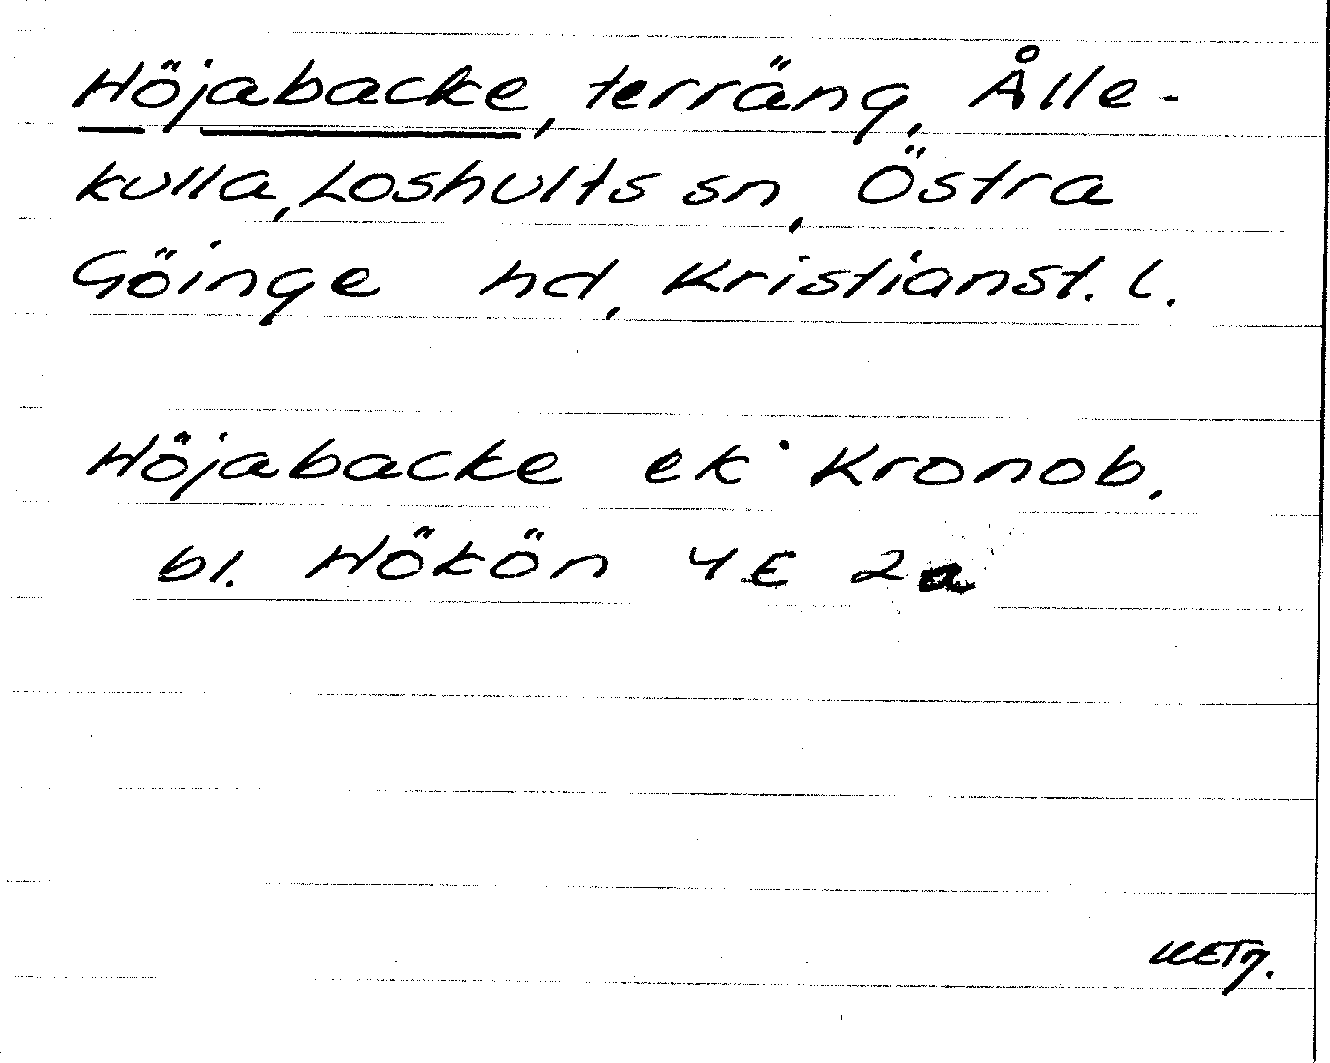 Höjabacke, terräng, Ålle-
kulla, Loshults sn, Östra
Göinge hd, Kristianst. l.
Höjabacke ek Kronob.
bl. Hökön 4E 2a